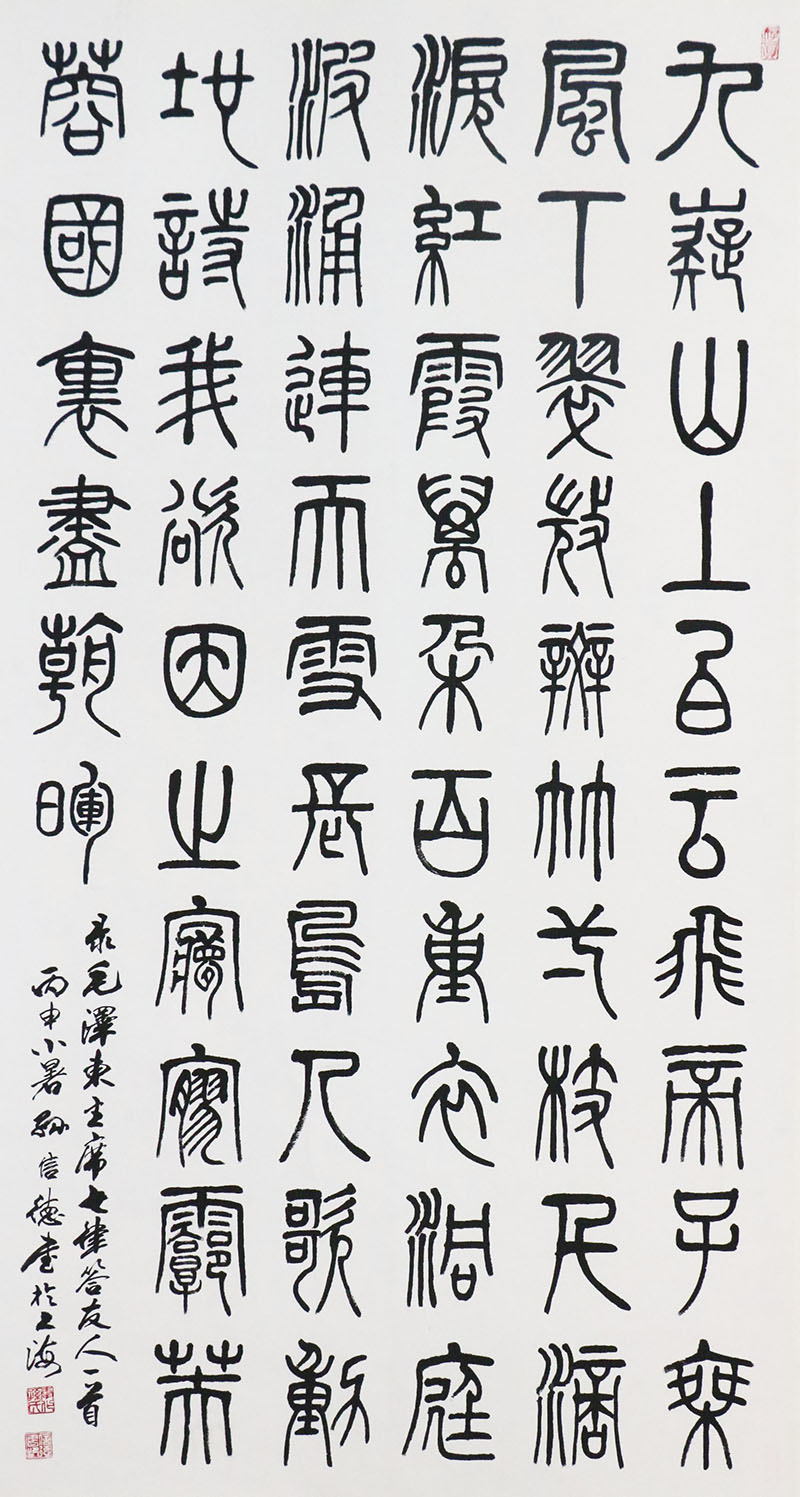 九嶷山上白云飛帝子乘
風下翠微辬竹弌枝千滴
淚紅霞萬朵百重衣洞庭
波涌連天雪長島人歌動
地詩我欲因之夢寥霩芙
蓉國裏盡朝暉
录毛澤東主席七律答友人一首
丙申小暑孫信德書於上海